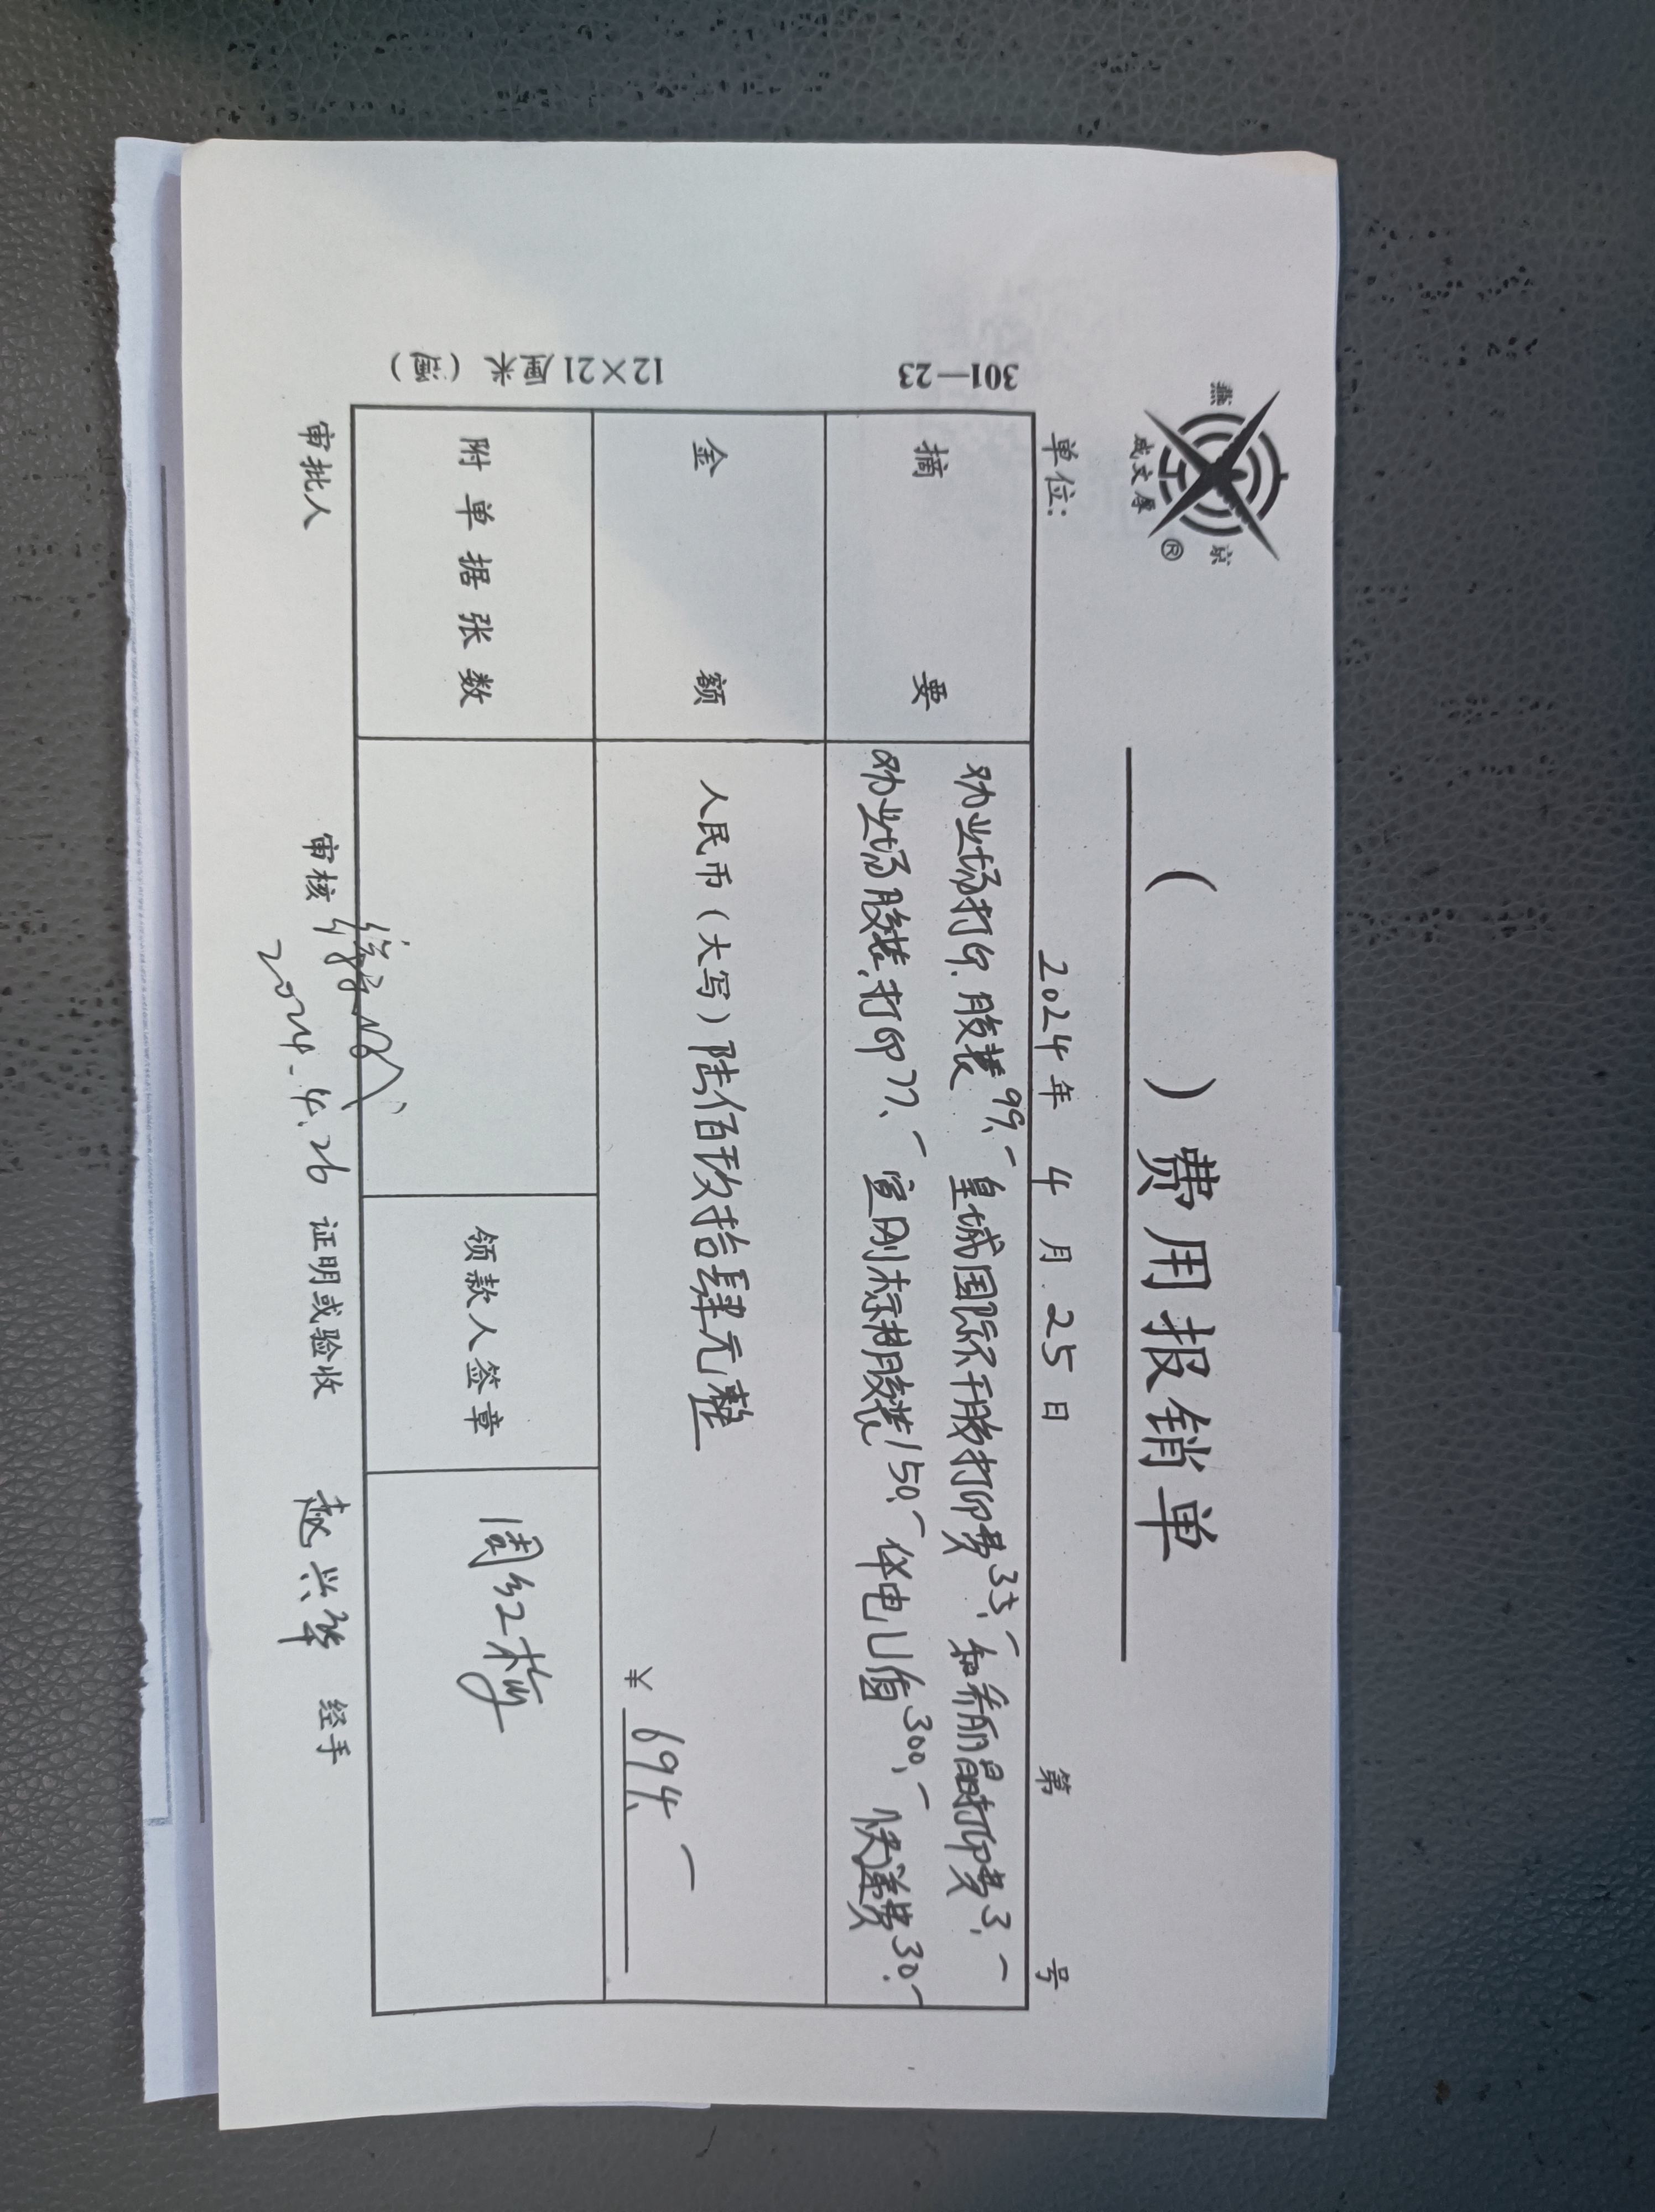 燕 京
成文厚
®
( ) 费用报销单
单位: 2024 年 4 月 25 日 第 号
301—23
12×21厘米 (酒)
摘要
劝业场打印、胶装 99.- 皇城国际手册打印费 35.- 打印费 3.-
劝业场胶装、打印 77.- 宣刚标书胶装 150.- 华电U值 300.- 快递费 30.-
金额
人民币(大写)陆佰玖拾肆元整
¥ 694.-
附单据张数
领款人签章 周红梅
审批人 审核 证明或验收 赵兴华 经手
2024.4.26